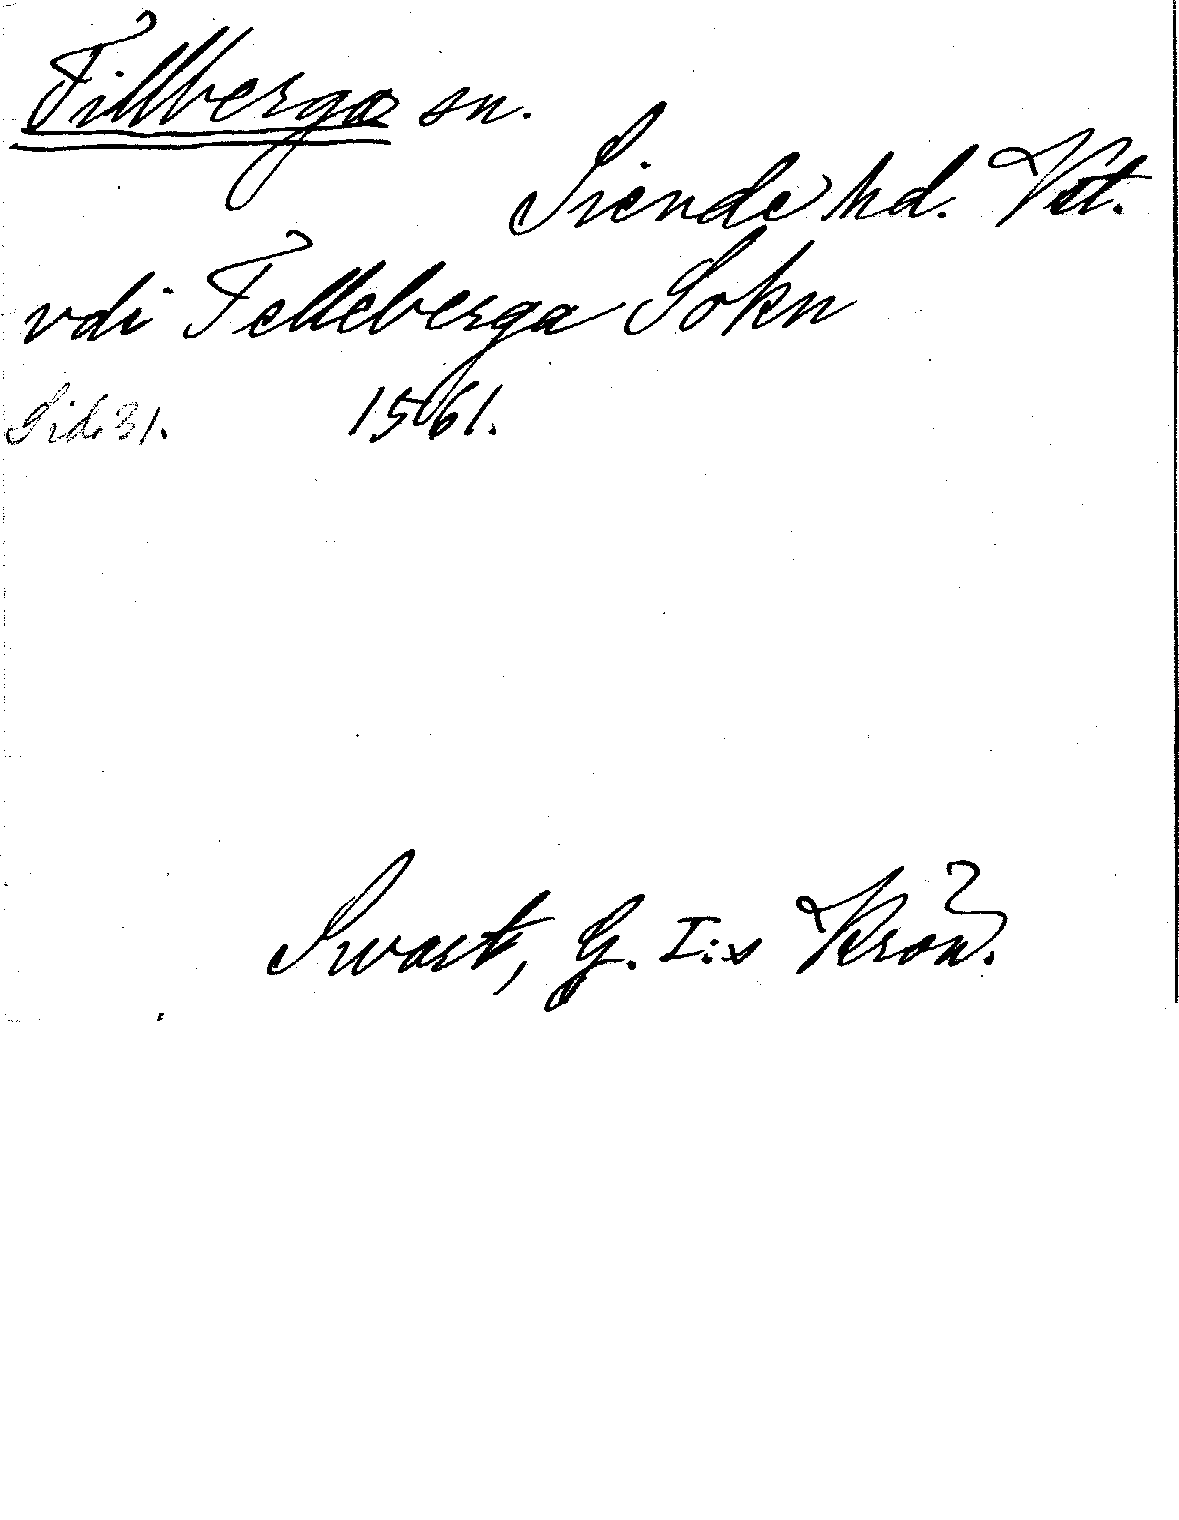 Tillberga sn.
Siende hd. Vst.
vdi Telleberga Sokn
Sid. 31. 1561.
Swart, G. I:s Krön.